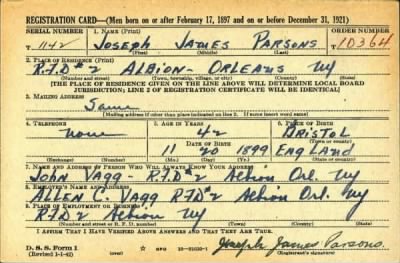 REGISTRATION CARD—(Men born on or after February 17, 1897 and on or before December 31, 1921)
SERIAL NUMBER 1. NAME (Print) ORDER NUMBER
1142 JOSEPH JAMES PARSONS 10364
(First) (Middle) (Last)
2. PLACE OF RESIDENCE (Print)
R.F.D #2 ALBION - ORLEANS NY
(Number and street) (Town, township, village, or city) (County) (State)
[THE PLACE OF RESIDENCE GIVEN ON THE LINE ABOVE WILL DETERMINE LOCAL BOARD
JURISDICTION; LINE 2 OF REGISTRATION CERTIFICATE WILL BE IDENTICAL]
3. MAILING ADDRESS
Same
[Mailing address if other than place indicated on line 2. If same insert word same]
4. TELEPHONE 5. AGE IN YEARS 6. PLACE OF BIRTH
none 42 BRISTOL
DATE OF BIRTH (Town or county)
11 20 1899 ENGLAND
(Exchange) (Number) (Mo.) (Day) (Yr.) (State or country)
7. NAME AND ADDRESS OF PERSON WHO WILL ALWAYS KNOW YOUR ADDRESS
JOHN VAGG - R.F.D #2 Albion Orl. NY
8. EMPLOYER'S NAME AND ADDRESS
ALLEN C. VAGG RFD #2 Albion Orl. NY
9. PLACE OF EMPLOYMENT OR BUSINESS
RFD 2 Albion NY
(Number and street or R. F. D. number) (Town) (County) (State)
I AFFIRM THAT I HAVE VERIFIED ABOVE ANSWERS AND THAT THEY ARE TRUE.
D. S. S. Form 1
(Revised 1-1-42) (over) GPO Joseph James Parsons.
(Registrant's signature)